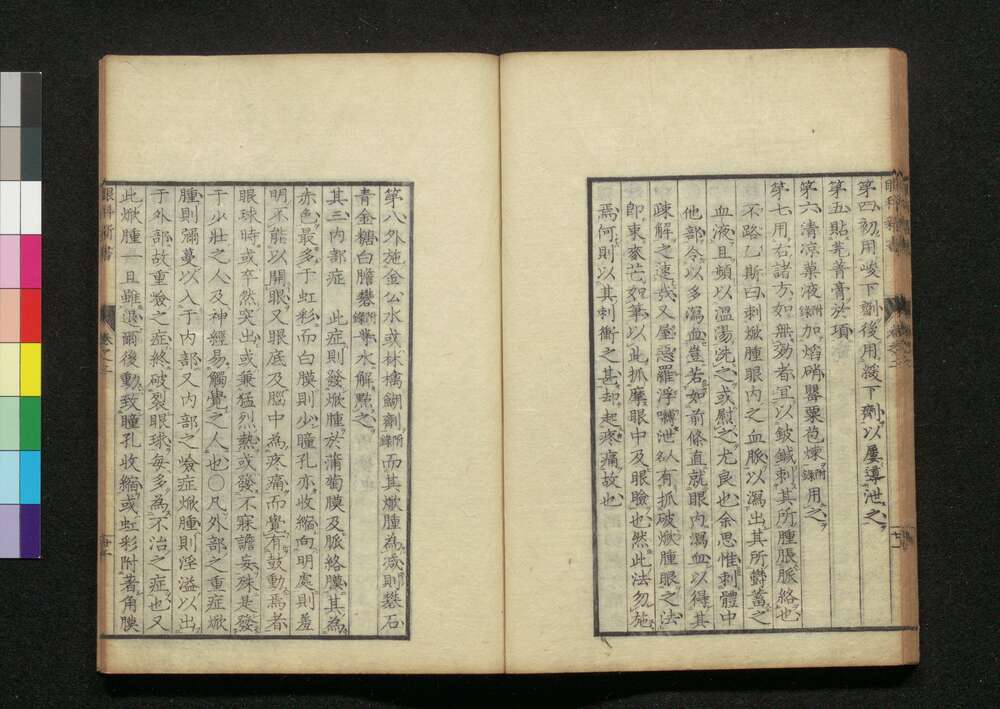 第四初用峻下劑後用緩下劑以屢導泄之
第五貼芫菁膏於項
第六清凉菓液附錄加焰硝罌粟苞煉附錄用之
第七用右諸方如無効者宜以鈹鍼刺其所腫脹脈絡也
不路乙斯曰刺焮腫眼內之血脈以漏出其所欝蓄之
血液且頻以温湯洗之或慰之尤良也余思惟刺體中
他部令以多漏血豈若如前條直就眼內漏血以得其
疎解之速哉又屋悪羅浮嚩泄名人有抓破焮腫眼之法
即束麥芒如筆以此抓縻眼中及眼瞼也然此法勿施
焉何則以其刺衝之甚却起疼痛故也
第八外施金公水或林檎餬劑附錄而其焮腫為减則礬石
青金糖白膽礬附錄等水解點之
其三內部症 此症則發焮腫於蒲萄膜及脈絡膜其為
赤色最多于虹彩而白膜則少瞳孔亦收縮向明處則羞
明不能以開眼又眼底及腦中為疼痛而覺有鼓動焉者
眼球時或卒然突出或兼猛烈熱或發不寐譫妄殊是發
于少壯之人及神經易觸覺之人也〇凡外部之重症焮
腫則彌蔓以入于內部又內部之嶮症焮腫則淫溢以出
于外部故重嶮之症終破裂眼球每多為不治之症也又
此焮腫一旦雖退爾後動致瞳孔收縮或虹彩附著角膜
眼科新書
卷之二